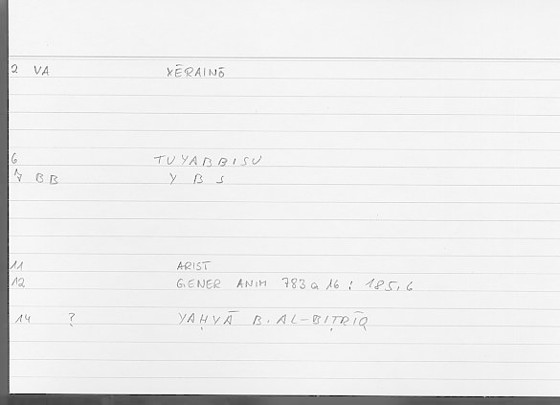 2 VA XĒRAINŌ
6 TUYABBISU
7 BB Y B S
11 ARIST
12 GENER ANIM 783a16 : 185,6
14 ? YAḤYĀ B. AL-BIṬRĪQ